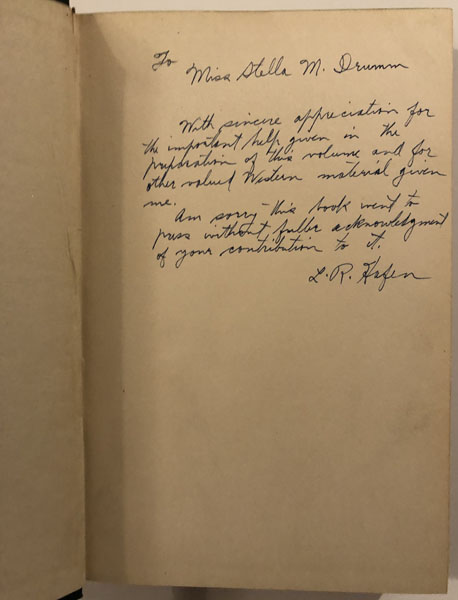 To
Miss Stella M. Drumm
With sincere appreciation for
the important help given in the
preparation of this volume and for
other valued Western material given
me.
Am sorry this book went to
press without fuller acknowledgment
of your contribution to it.
L. R. Hafen